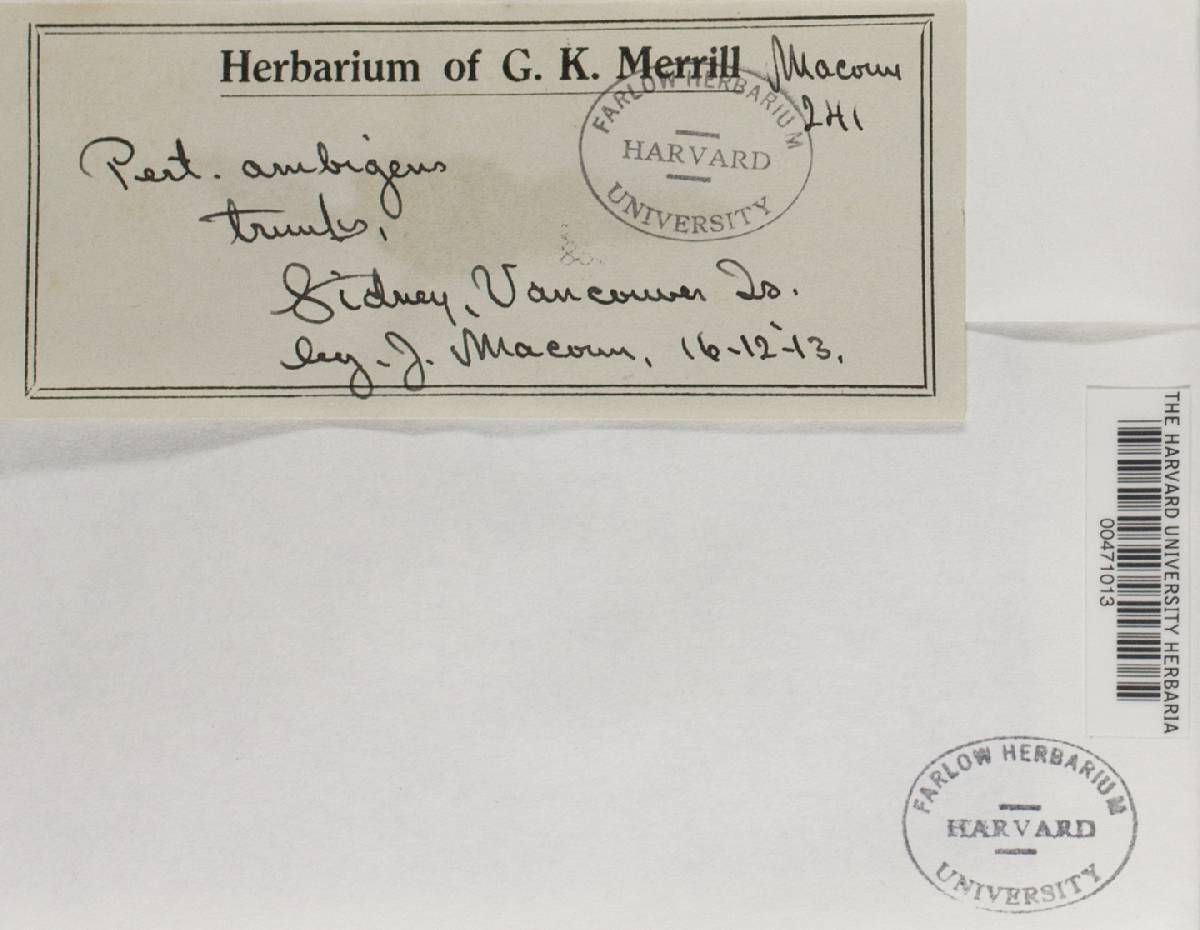 Herbarium of G. K. Merrill
Macoun
241
FARLOW HERBARIUM
HARVARD
UNIVERSITY
Pert. ambigens
trunks,
Sidney, Vancouver Is.
leg. J. Macoun, 16-12-13.
THE HARVARD UNIVERSITY HERBARIA
00471013
FARLOW HERBARIUM
HARVARD
UNIVERSITY